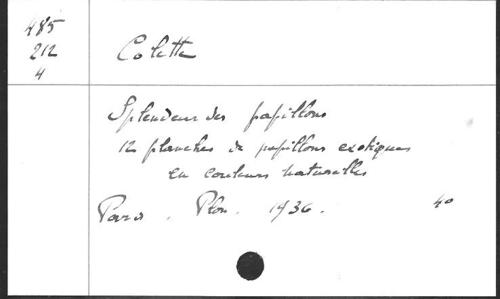 485
212
4
Colette
Splendeur des papillons
12 planches de papillons exotiques
en couleurs naturelles
Paris. Plon. 1936.
40